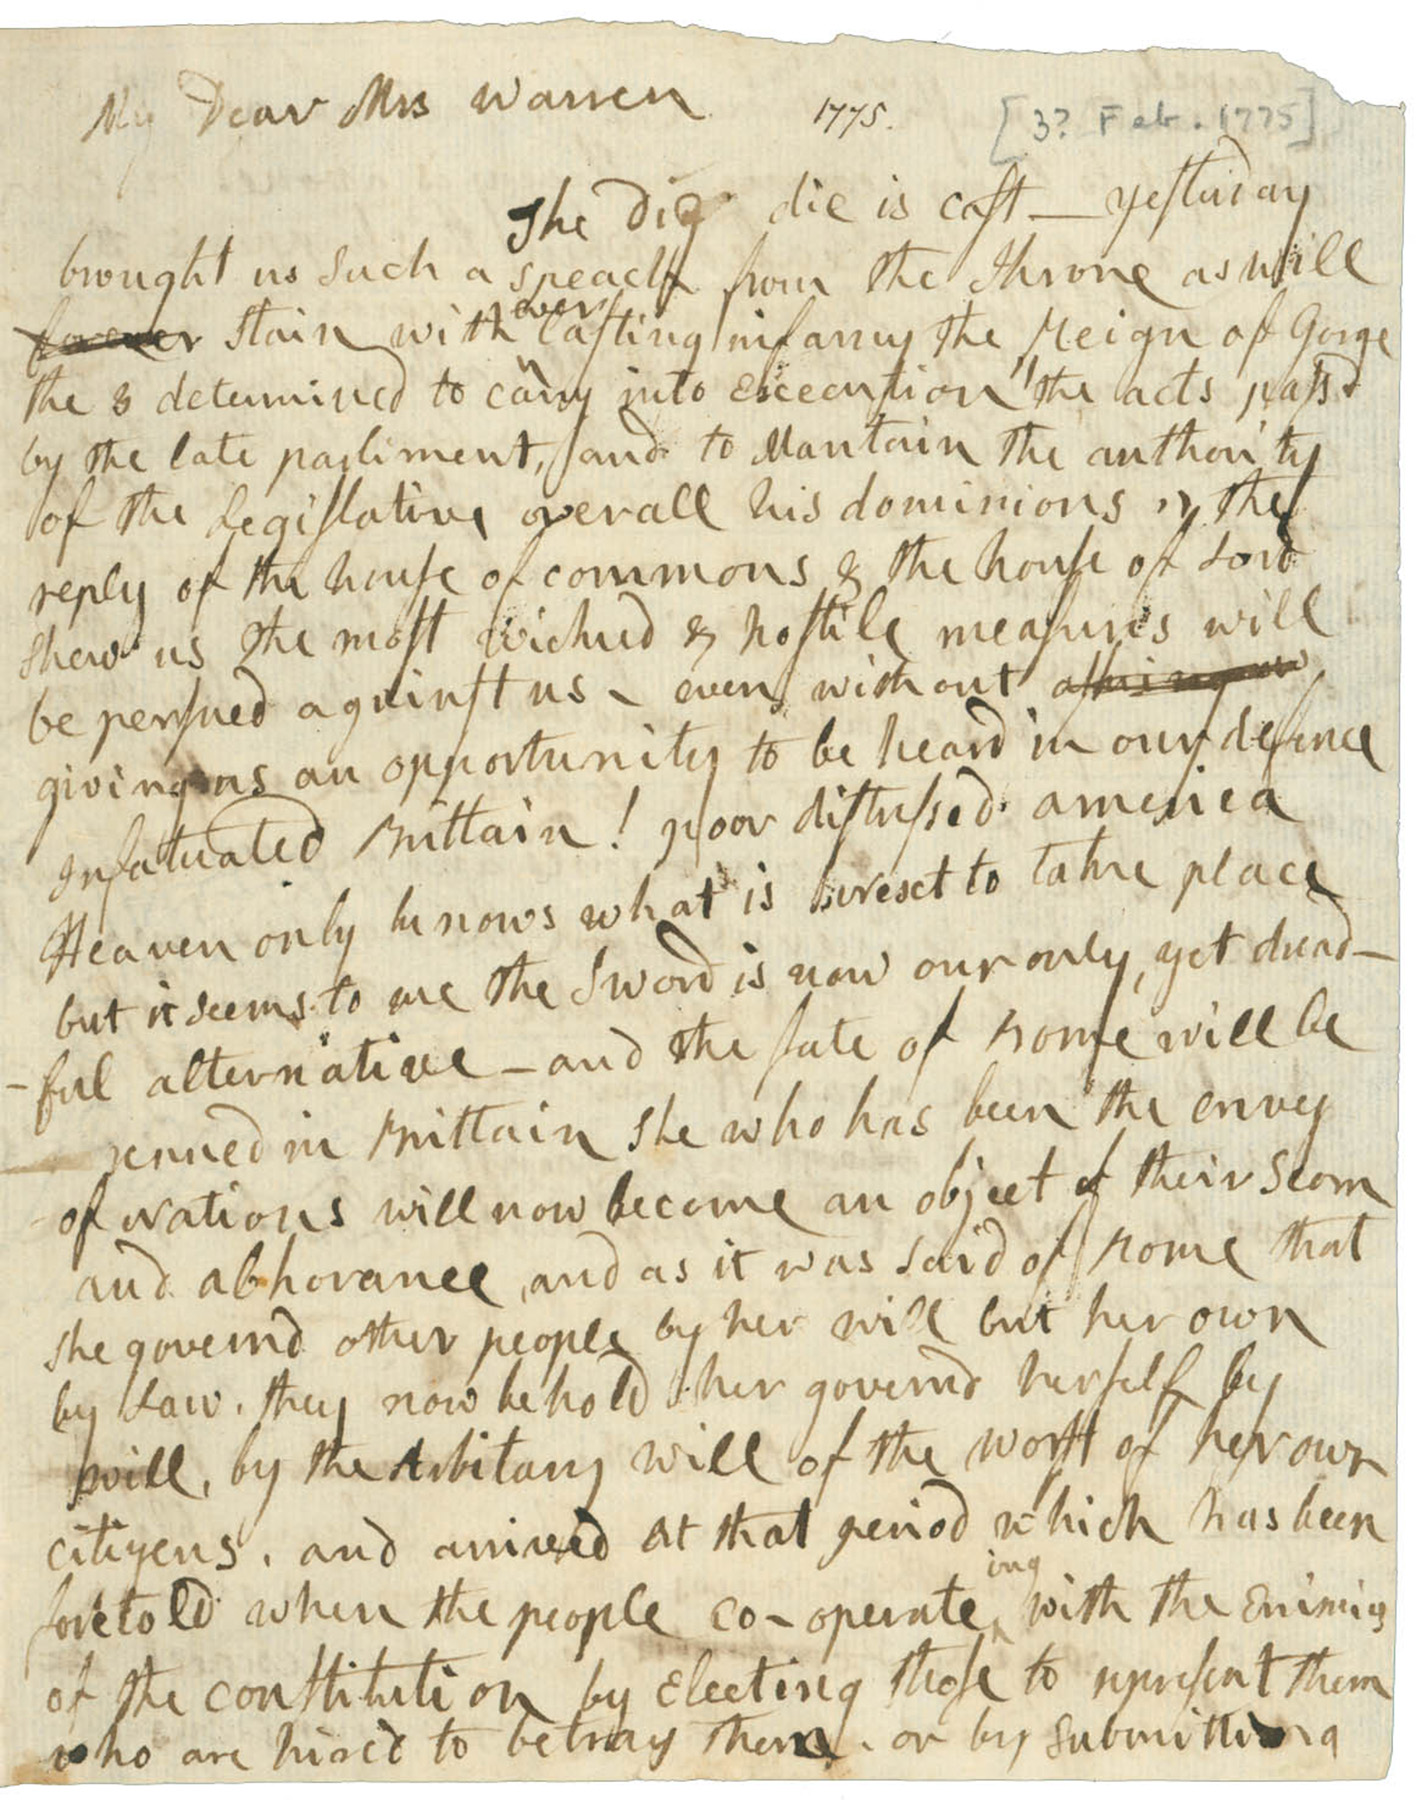 My Dear Mrs Warren
1775.
[3? Feb. 1775]
The die is cast — yesterday
brought us such a speach from the Throne as will
forever stain with everlasting infamy the Reign of Gorge
the 3 determined to carry into Execution "the acts passd
by the late parliment, and to Mantain the authority
of the Legislative over all his dominions" the
reply of the house of commons & the house of Lord
shew us the most wicked & hostile measures will
be persued against us – even without
giving us an opportunity to be heard in our defence
Infatuated Brittain! poor distressed America
Heaven only knows what is next to take place
but it seems to me the Sword is now our only, yet dread-
-ful alternative – and the fate of Rome will be
renued in Brittain She who has been the envy
of Nations will now become an object of their Scorn
and abhorance, and as it was said of Rome that
she governd other people by her will but her own
by Law. they now behold her governd herself by
will, by the Arbitary will of the worst of her own
citizens. and arrived at that period which has been
foretold when the people co-operateing with the Enimies
of the constitution by Electing those to represent them
who are hired to betray them. or by submitting